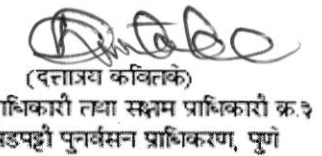 (दत्तात्रय कवितके)
ाधिकारी तथा सक्षम प्राधिकारी क्र.३
डपट्टी पुनर्वसन प्राधिकरण, पुणे